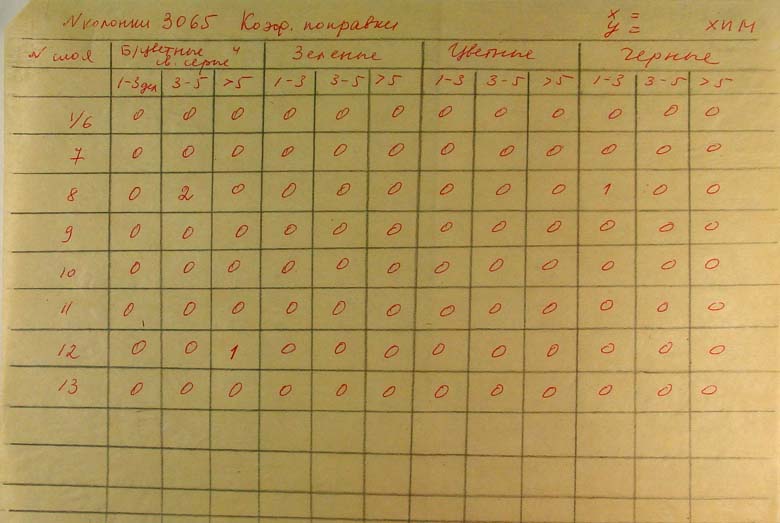 N колонки 3065 Коэф. поправки x = y = ХИМ
N слоя Б/цветные и св. серые Зеленые Цветные Черные
1-3 дел 3-5 >5 1-3 3-5 >5 1-3 3-5 >5 1-3 3-5 >5
1/6 0 0 0 0 0 0 0 0 0 0 0 0
7 0 0 0 0 0 0 0 0 0 0 0 0
8 0 2 0 0 0 0 0 0 0 1 0 0
9 0 0 0 0 0 0 0 0 0 0 0 0
10 0 0 0 0 0 0 0 0 0 0 0 0
11 0 0 0 0 0 0 0 0 0 0 0 0
12 0 0 1 0 0 0 0 0 0 0 0 0
13 0 0 0 0 0 0 0 0 0 0 0 0